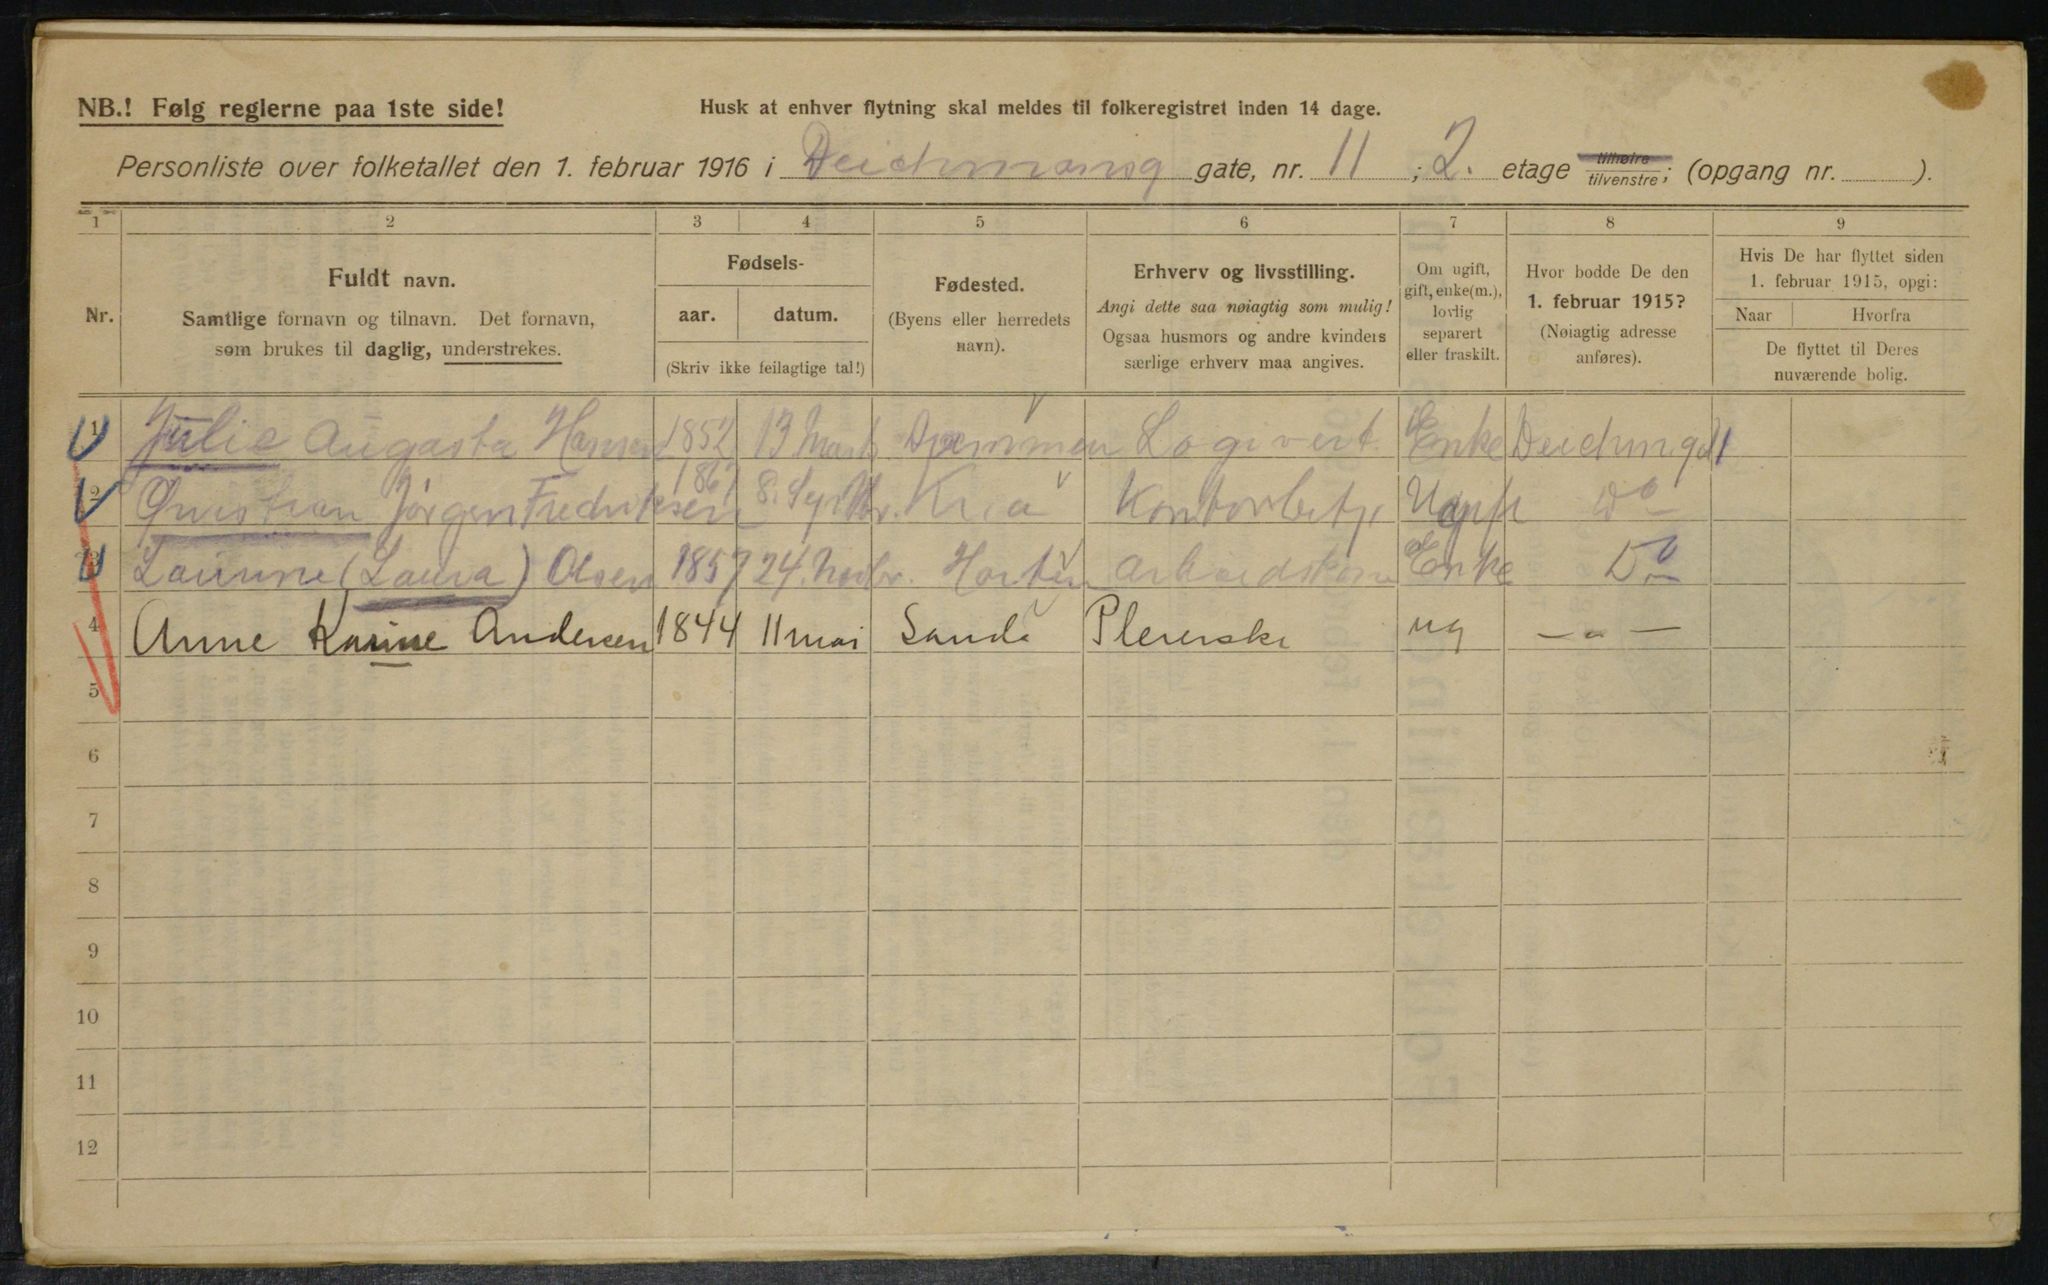 NB.! Følg reglerne paa 1ste side!
Husk at enhver flytning skal meldes til folkeregistret inden 14 dage.
Personliste over folketallet den 1. februar 1916 i Deichmansg gate, nr. 11 ; 2. etage tilhøire tilvenstre; (opgang nr. ).
1 2 3 4 5 6 7 8 9
Nr.
Fuldt navn.
Samtlige fornavn og tilnavn. Det fornavn,
som brukes til daglig, understrekes.
Fødsels-
aar. datum.
(Skriv ikke feilagtige tal!)
Fødested.
(Byens eller herredets
navn).
Erhverv og livsstilling.
Angi dette saa nøiagtig som mulig!
Ogsaa husmors og andre kvinders
særlige erhverv maa angives.
Om ugift,
gift, enke(m.),
lovlig
separert
eller fraskilt.
Hvor bodde De den
1. februar 1915?
(Nøiagtig adresse
anføres).
Hvis De har flyttet siden
1. februar 1915, opgi:
Naar Hvorfra
De flyttet til Deres
nuværende bolig.
1 Julie Augasta Hansen 1852 13 Marts Logivert. Enke
2 Jörgen Fredriksen 8. Kr.a Ugift Do
3 (Laura) Olsen 1857 24. Horten Enke Do
4 Anne Karine Andersen 1844 11 mai Sande ug — " —
5
6
7
8
9
10
11
12